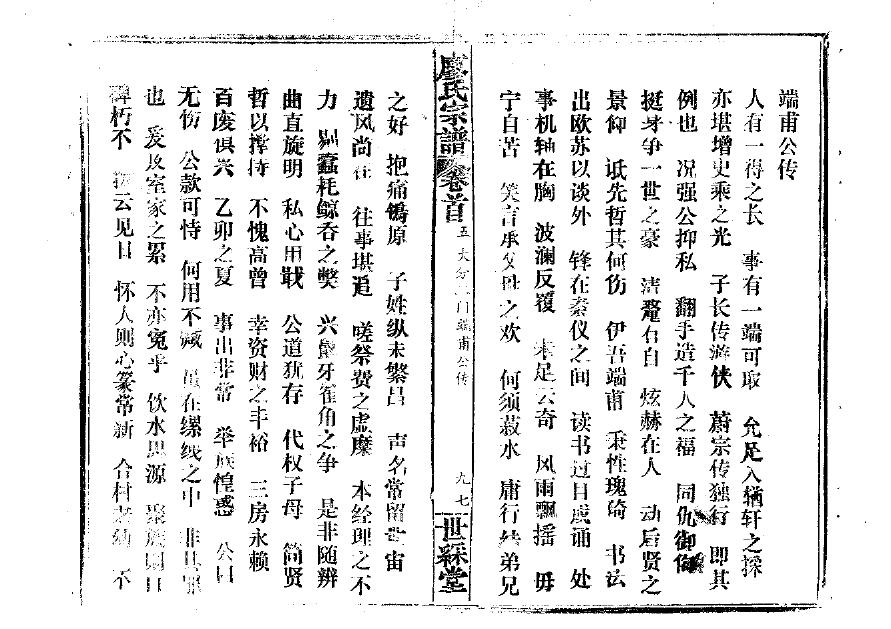 端甫公传
人有一得之长 事有一端可取 允足入輶轩之採
亦堪增史乘之光 子长传游侠 蔚宗传独行 即其
例也 况强公抑私 翻手造千人之福 同仇御侮
挺身争一世之豪 清 右自 炫赫在人 动后贤之
景仰 诋先哲其何伤 伊吾端甫 秉性瑰琦 书法
出欧苏以谈外 锋在秦仪之间 读书过目成诵 处
事机轴在胸 波澜反覆 未足云奇 风雨飘摇 毋
宁自苦 笑言承父母之欢 何须菽水 庸行 弟兄
廖氏宗譜 卷首 五大分 门端甫公传 九七 世綵堂
之好 抱痛鴒原 子姓纵未繁昌 声名常留 宙
遗风尚在 往事堪追 嗟祭费之虚糜 本经理之不
力 蠹耗鲸吞之弊 兴 牙雀角之争 是非随辨
曲直旋明 私心用戢 公道犹存 代权子母 简贤
哲以撑持 不愧高曾 幸资财之丰裕 三房永赖
百废俱兴 乙卯之夏 事出非常 举族惶惑 公曰
无伤 公款可恃 何用不臧 虽在缧绁之中 非其罪
也 爰及室家之累 不亦冤乎 饮水思源 聚族则曰
碑朽不 云见日 怀人则心篆常新 合村老幼 不